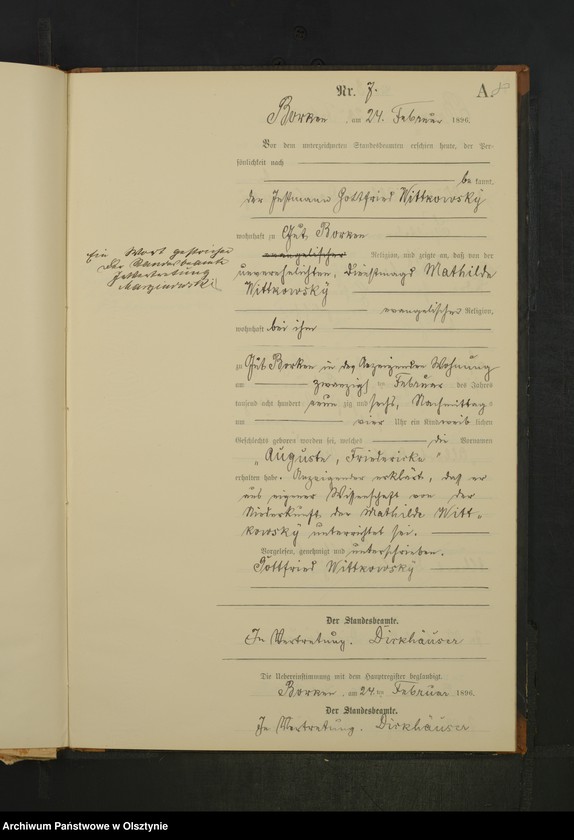 Nr. 7.
A.
Borken, am 24. Februar 1896.
Vor dem unterzeichneten Standesbeamten erschien heute, der Per-
sönlichkeit nach
be kannt,
der Instmann Gottfried Wittkowsky
wohnhaft zu Gut Borken
evangelischer Religion, und zeigte an, daß von der
unverehelichten, Dienstmagd Mathilde
Wittkowsky
evangelischer Religion,
wohnhaft bei ihm
zu Gut Borken in des Anzeigenden Wohnung
am zwanzigsten Februar des Jahres
tausend acht hundert neun zig und sechs, Nachmittags
um vier Uhr ein Kind weib lichen
Geschlechts geboren worden sei, welches die Vornamen
"Auguste, Friedericke"
erhalten habe. Anzeigender erklärt, daß er
aus eigener Wissenschaft von der
Niederkunft der Mathilde Witt-
kowsky unterrichtet sei.
Vorgelesen, genehmigt und unterschrieben.
Gottfried Wittkowsky
Ein Wort gestrichen
Der Standesbeamte
In Vertretung
Der Standesbeamte.
In Vertretung. Dirkhäuser
Die Uebereinstimmung mit dem Hauptregister beglaubigt
Borken, am 24.ten Februar 1896.
Der Standesbeamte.
In Vertretung. Dirkhäuser
Archiwum Państwowe w Olsztynie